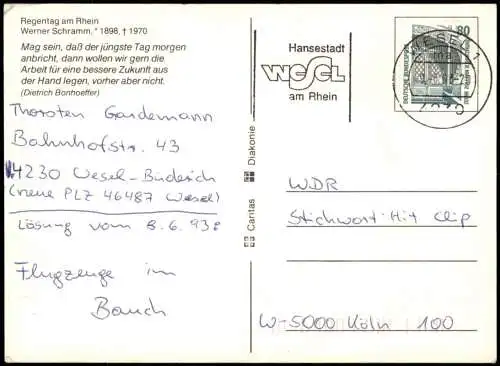 Regentag am Rhein
Werner Schramm, * 1898, † 1970
Mag sein, daß der jüngste Tag morgen
anbricht, dann wollen wir gern die
Arbeit für eine bessere Zukunft aus
der Hand legen, vorher aber nicht.
(Dietrich Bonhoeffer)
Thorsten Gardemann
Bahnhofstr. 43
4230 Wesel-Büderich
(neue PLZ 46487 Wesel)
Lösung vom 8.6.93:
Flugzeuge im
Bauch
Caritas Diakonie
Hansestadt
WESEL
am Rhein
WESEL 1
4230
80
DEUTSCHE BUNDESPOST
WDR
Stichwort: Hit Clip
W-5000 Köln 100